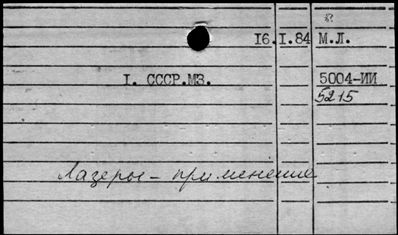 16.I.84 М.Л.
I. СССР.МЗ. 5004-ИИ
5215
Лазеры - применение